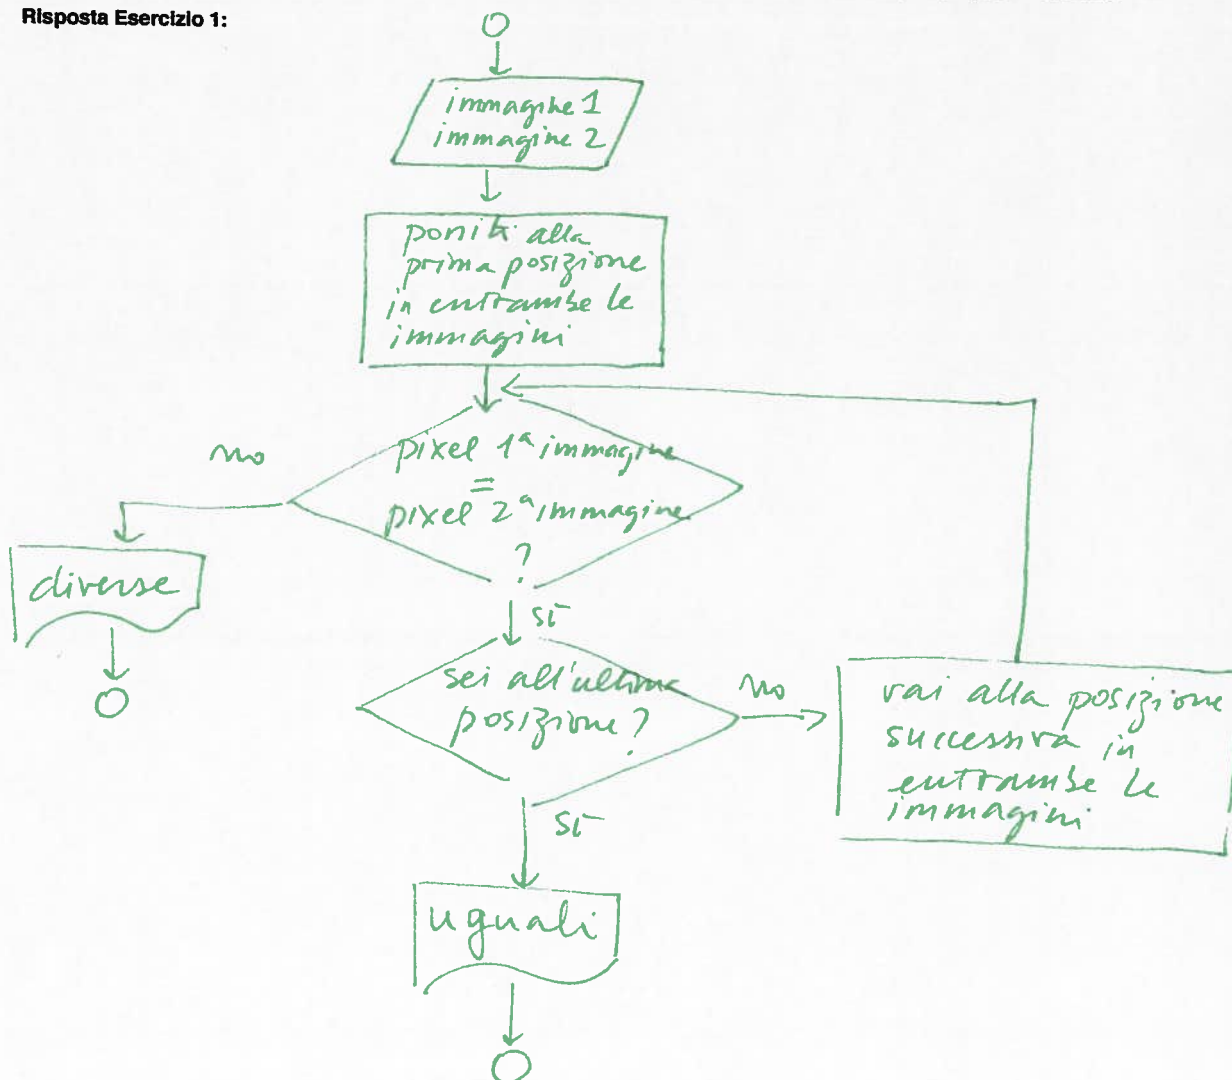 Risposta Esercizio 1:
immagine 1
immagine 2
poniti alla
prima posizione
in entrambe le
immagini
no
pixel 1ª immagine
=
pixel 2ª immagine
?
diverse
sì
sei all'ultima
posizione?
no
vai alla posizione
successiva in
entrambe le
immagini
sì
uguali